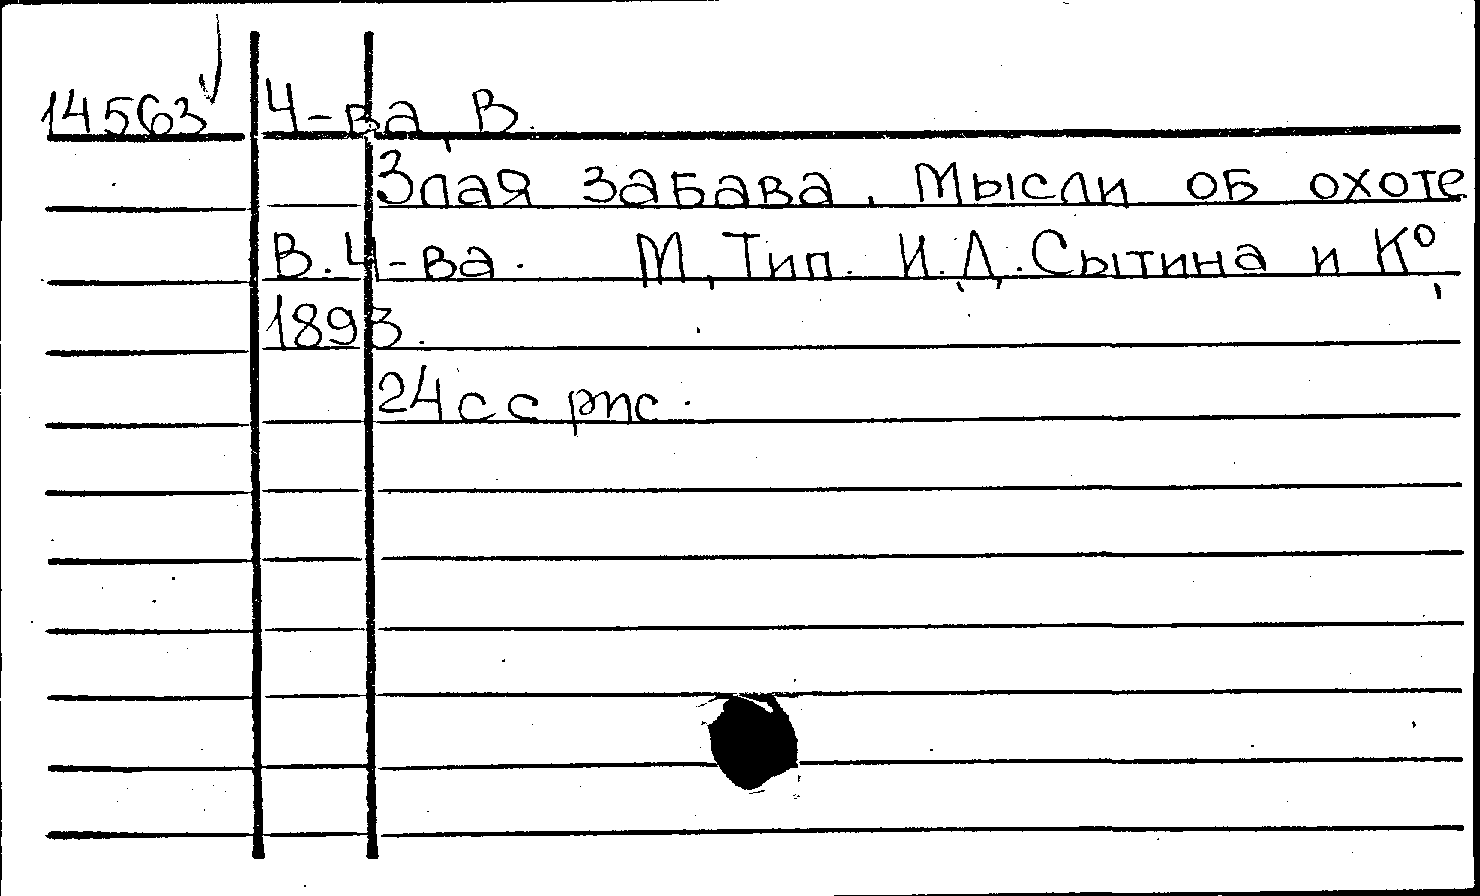 14563 Ч-ва, В.
Злая забава. Мысли об охоте
В. Ч-ва. М., Тип. И.Д. Сытина и Кº,
1893.
24 с с рис.